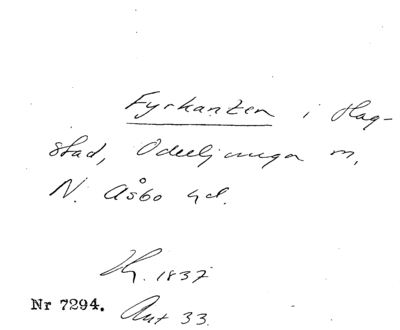 Fyrkanten i Hag-
stad, Odeeljunga m,
N. Åsbo hd.
Hy. 1837
Nr 7294. Ant 33.